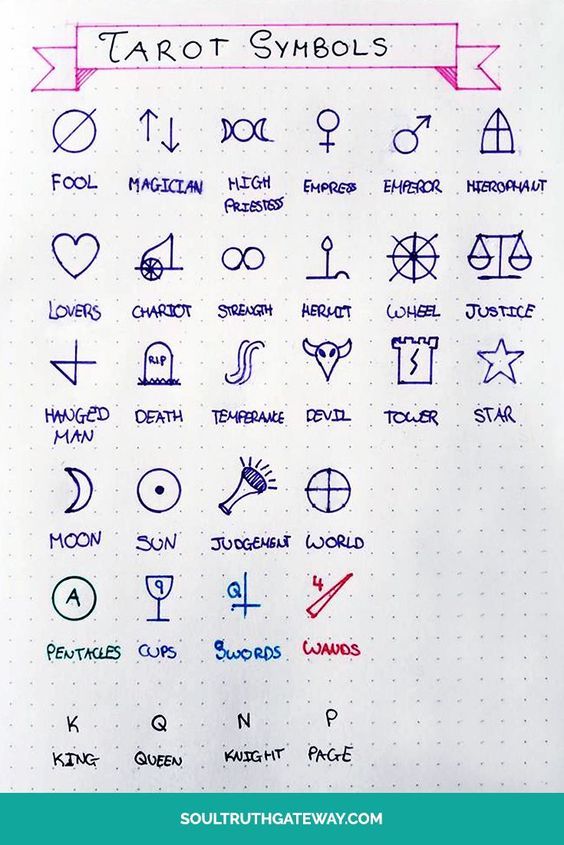 TAROT SYMBOLS
FOOL MAGICIAN HIGH PRIESTESS EMPRESS EMPEROR HIEROPHANT
LOVERS CHARIOT STRENGTH HERMIT WHEEL JUSTICE
RIP
HANGED MAN DEATH TEMPERANCE DEVIL TOWER STAR
MOON SUN JUDGEMENT WORLD
A 9 Q 4
PENTACLES CUPS SWORDS WANDS
K Q N P
KING QUEEN KNIGHT PAGE
SOULTRUTHGATEWAY.COM